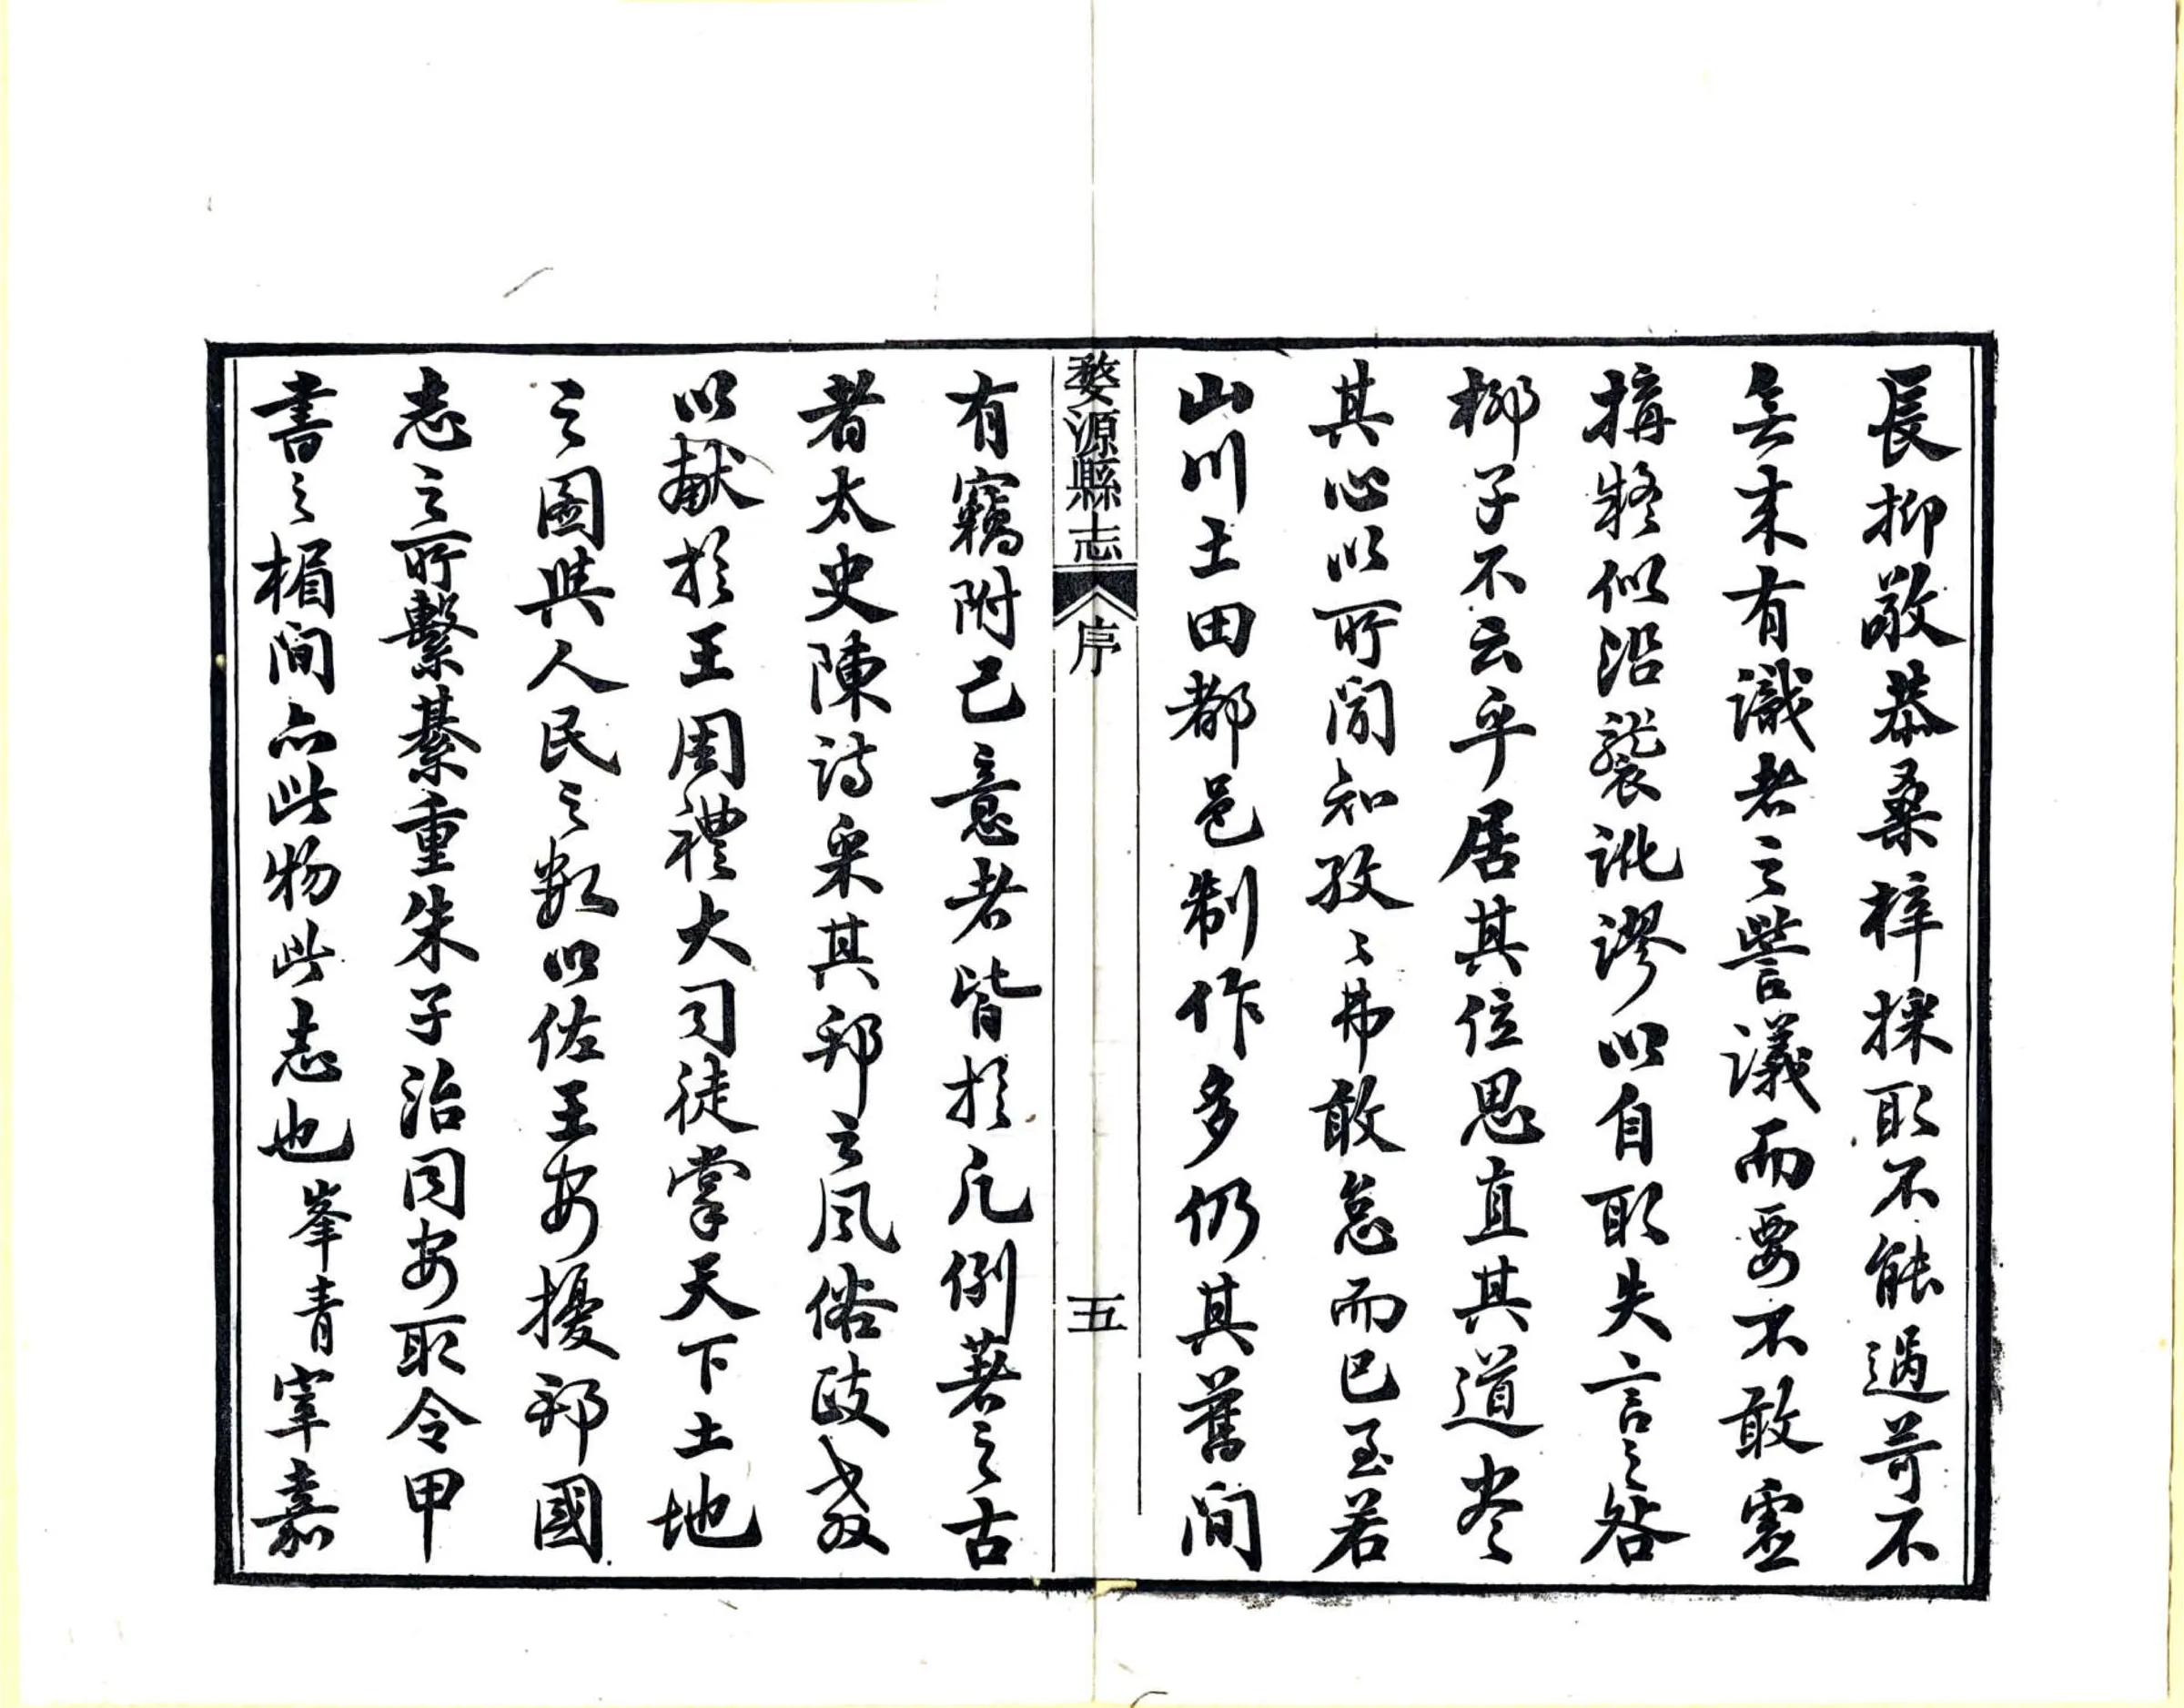 長抑敬恭桑梓採取不能過苛不
無未有識者之訾議而要不敢虛
搆疑似沿襲訛謬以自取失言之咎
柳子不云乎居其位思直其道盡
其心以所聞知孜〻弗敢怠而已至若
山川土田都邑制作多仍其舊間
婺源縣志 序 五
有竊附己意者皆於凡例著之古
者太史陳詩采其邦之風俗政教
以獻於王周禮大司徒掌天下土地
之圖與人民之數以佐王安擾邦國
志之所繫綦重朱子治同安取令甲
書之楣間亦此物此志也峯青宰嘉